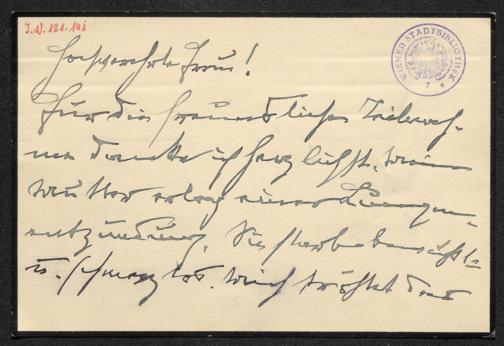 I.N. 121.141
WIENER STADTBIBLIOTHEK
Hochverehrte Frau!
Für die freundliche Teilneh-
me danke ich herzlichst. Meine
Mutter erlag einer Lungen-
entzündung. Sie starb bewußt-
u. schmerzlos. Mich tröstet das